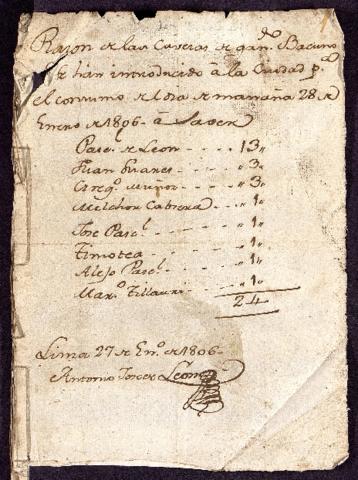 Razon de las Cavesas de gan.do Bacuno
q.e han introducido â la Ciudad p.a
el consumo de el dia de mañana 28 de
Enero de 1806 - â Saver
Pasq.l de Leon - - - - 13 „
Juan Suares - - - - „ 3 „
Greg.o Muñoz - - - - „ 3 „
Melchor Cabrera - - - „ 1 „
Jose Pasq.l - - - - „ 1 „
Timotea - - - - „ 1 „
Alejo Pasq.l - - - - „ 1 „
Mar.o - - - - „ 1 „
24
Lima 27 de En.o de 1806 -
Antonio Leon